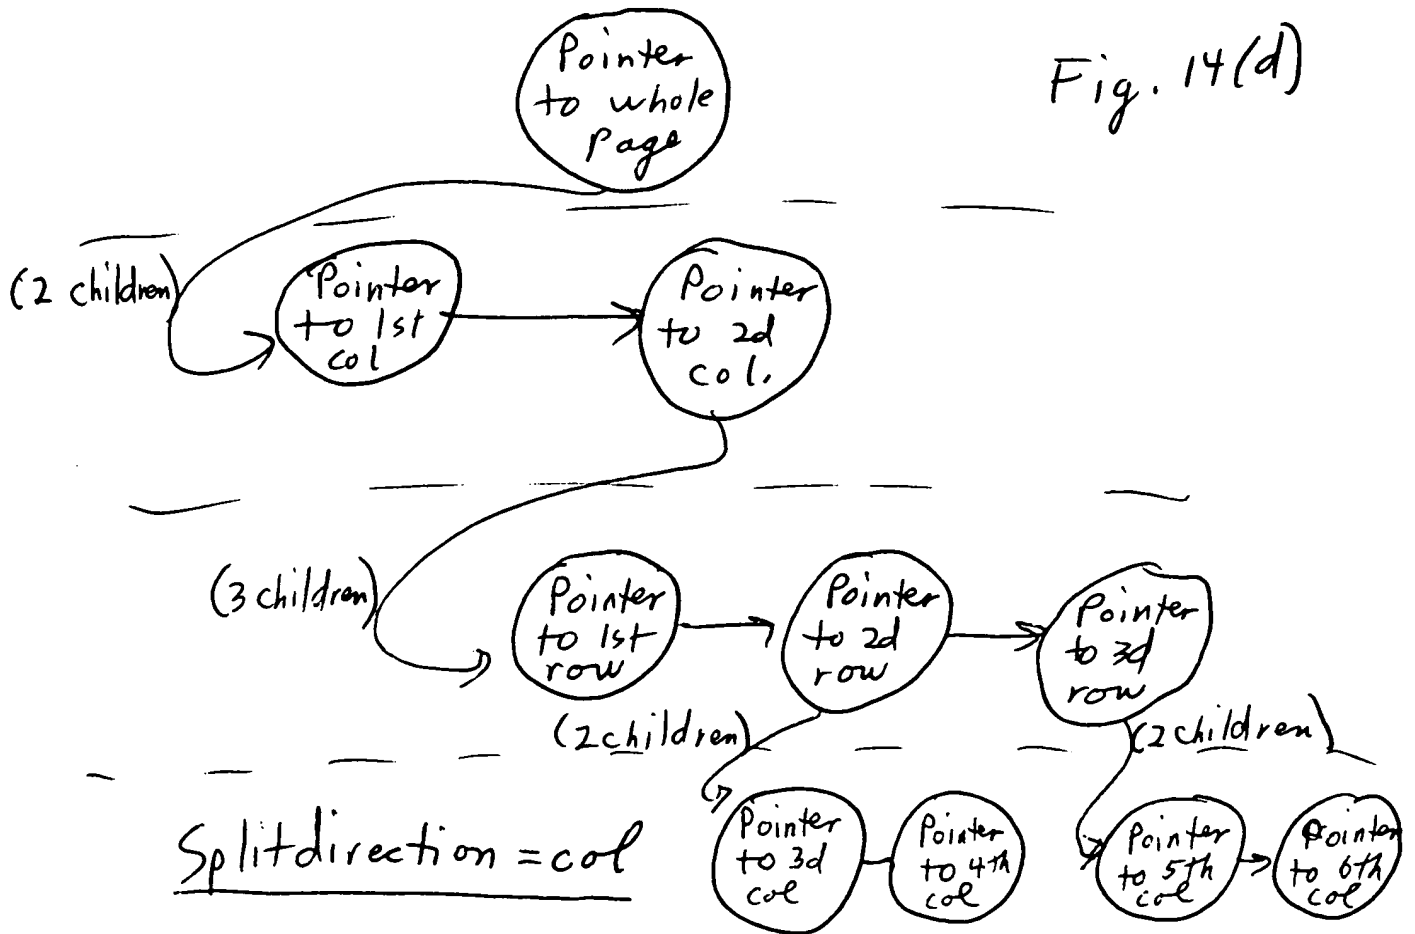 Fig. 14(d)
Pointer
to whole
page
(2 children)
Pointer
to 1st
col
Pointer
to 2d
col.
(3 children)
Pointer
to 1st
row
Pointer
to 2d
row
Pointer
to 3d
row
(2 children)
(2 children)
Splitdirection = col
Pointer
to 3d
col
Pointer
to 4th
col
Pointer
to 5th
col
Pointer
to 6th
col